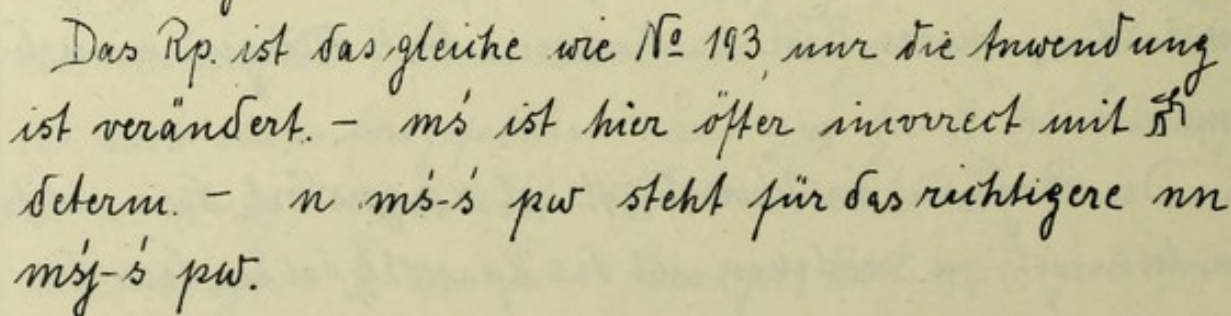 Das Rp. ist das gleiche wie No 193, nur die Anwendung
ist verändert. – mś ist hier öfter incorrect mit 𓀜
determ. – n mś-ś pw steht für das richtigere nn
mśj-ś pw.